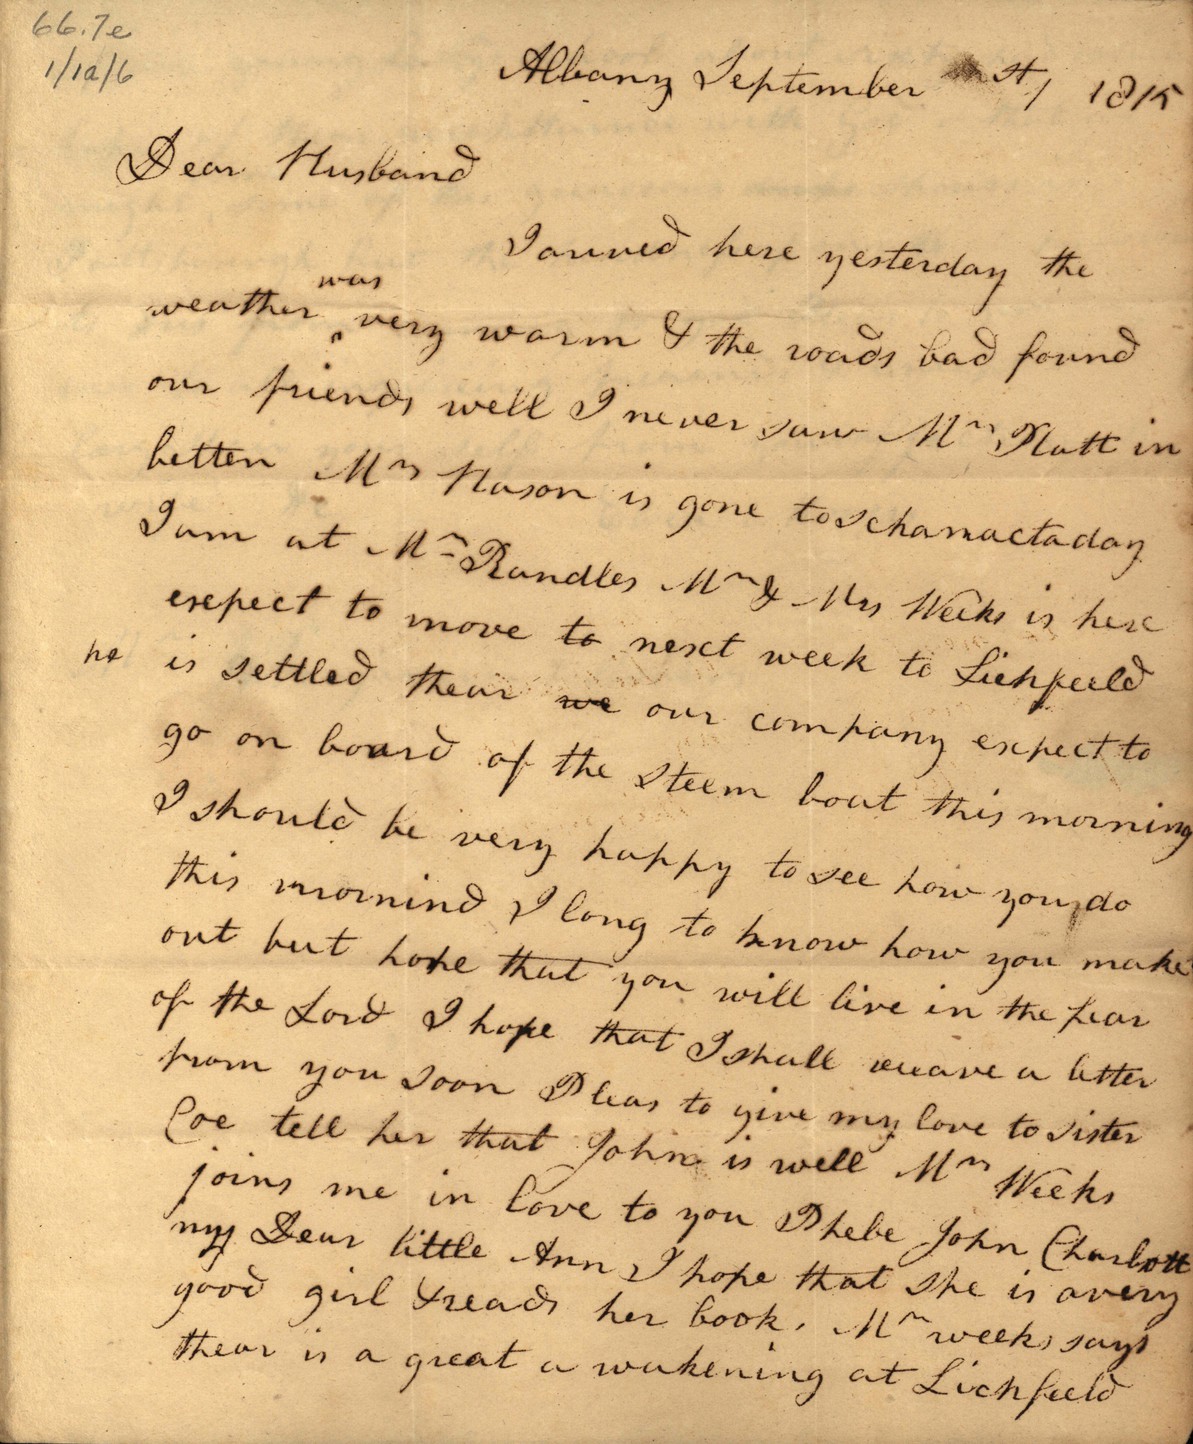 66.7e
1/1a/6
Albany September st / 1815
Dear Husband
I arived here yesterday the
was
weather ^ very warm & the roads bad found
our friends well I never saw Mrs Platt in
better Mrs Nason is gone to Schanactaday
I am at Mr Randles Mr & Mrs Weeks is here
exepect to move to next week to Lichfeeld
he is settled thear we our company expect to
go on board of the steem boat this morning
I should be very happy to see how you do
this mornind I long to know how you make
out but hope that you will live in the fear
of the Lord I hope that I shall receave a letter
from you soon Pleas to give my love to sister
Coe tell her that John is well Mrs Weeks
joins me in love to you Phebe John Charlott
my Dear little Ann I hope that she is a very
good girl & reads her book. Mr weeks says
thear is a great a wakening at Lichfeeld